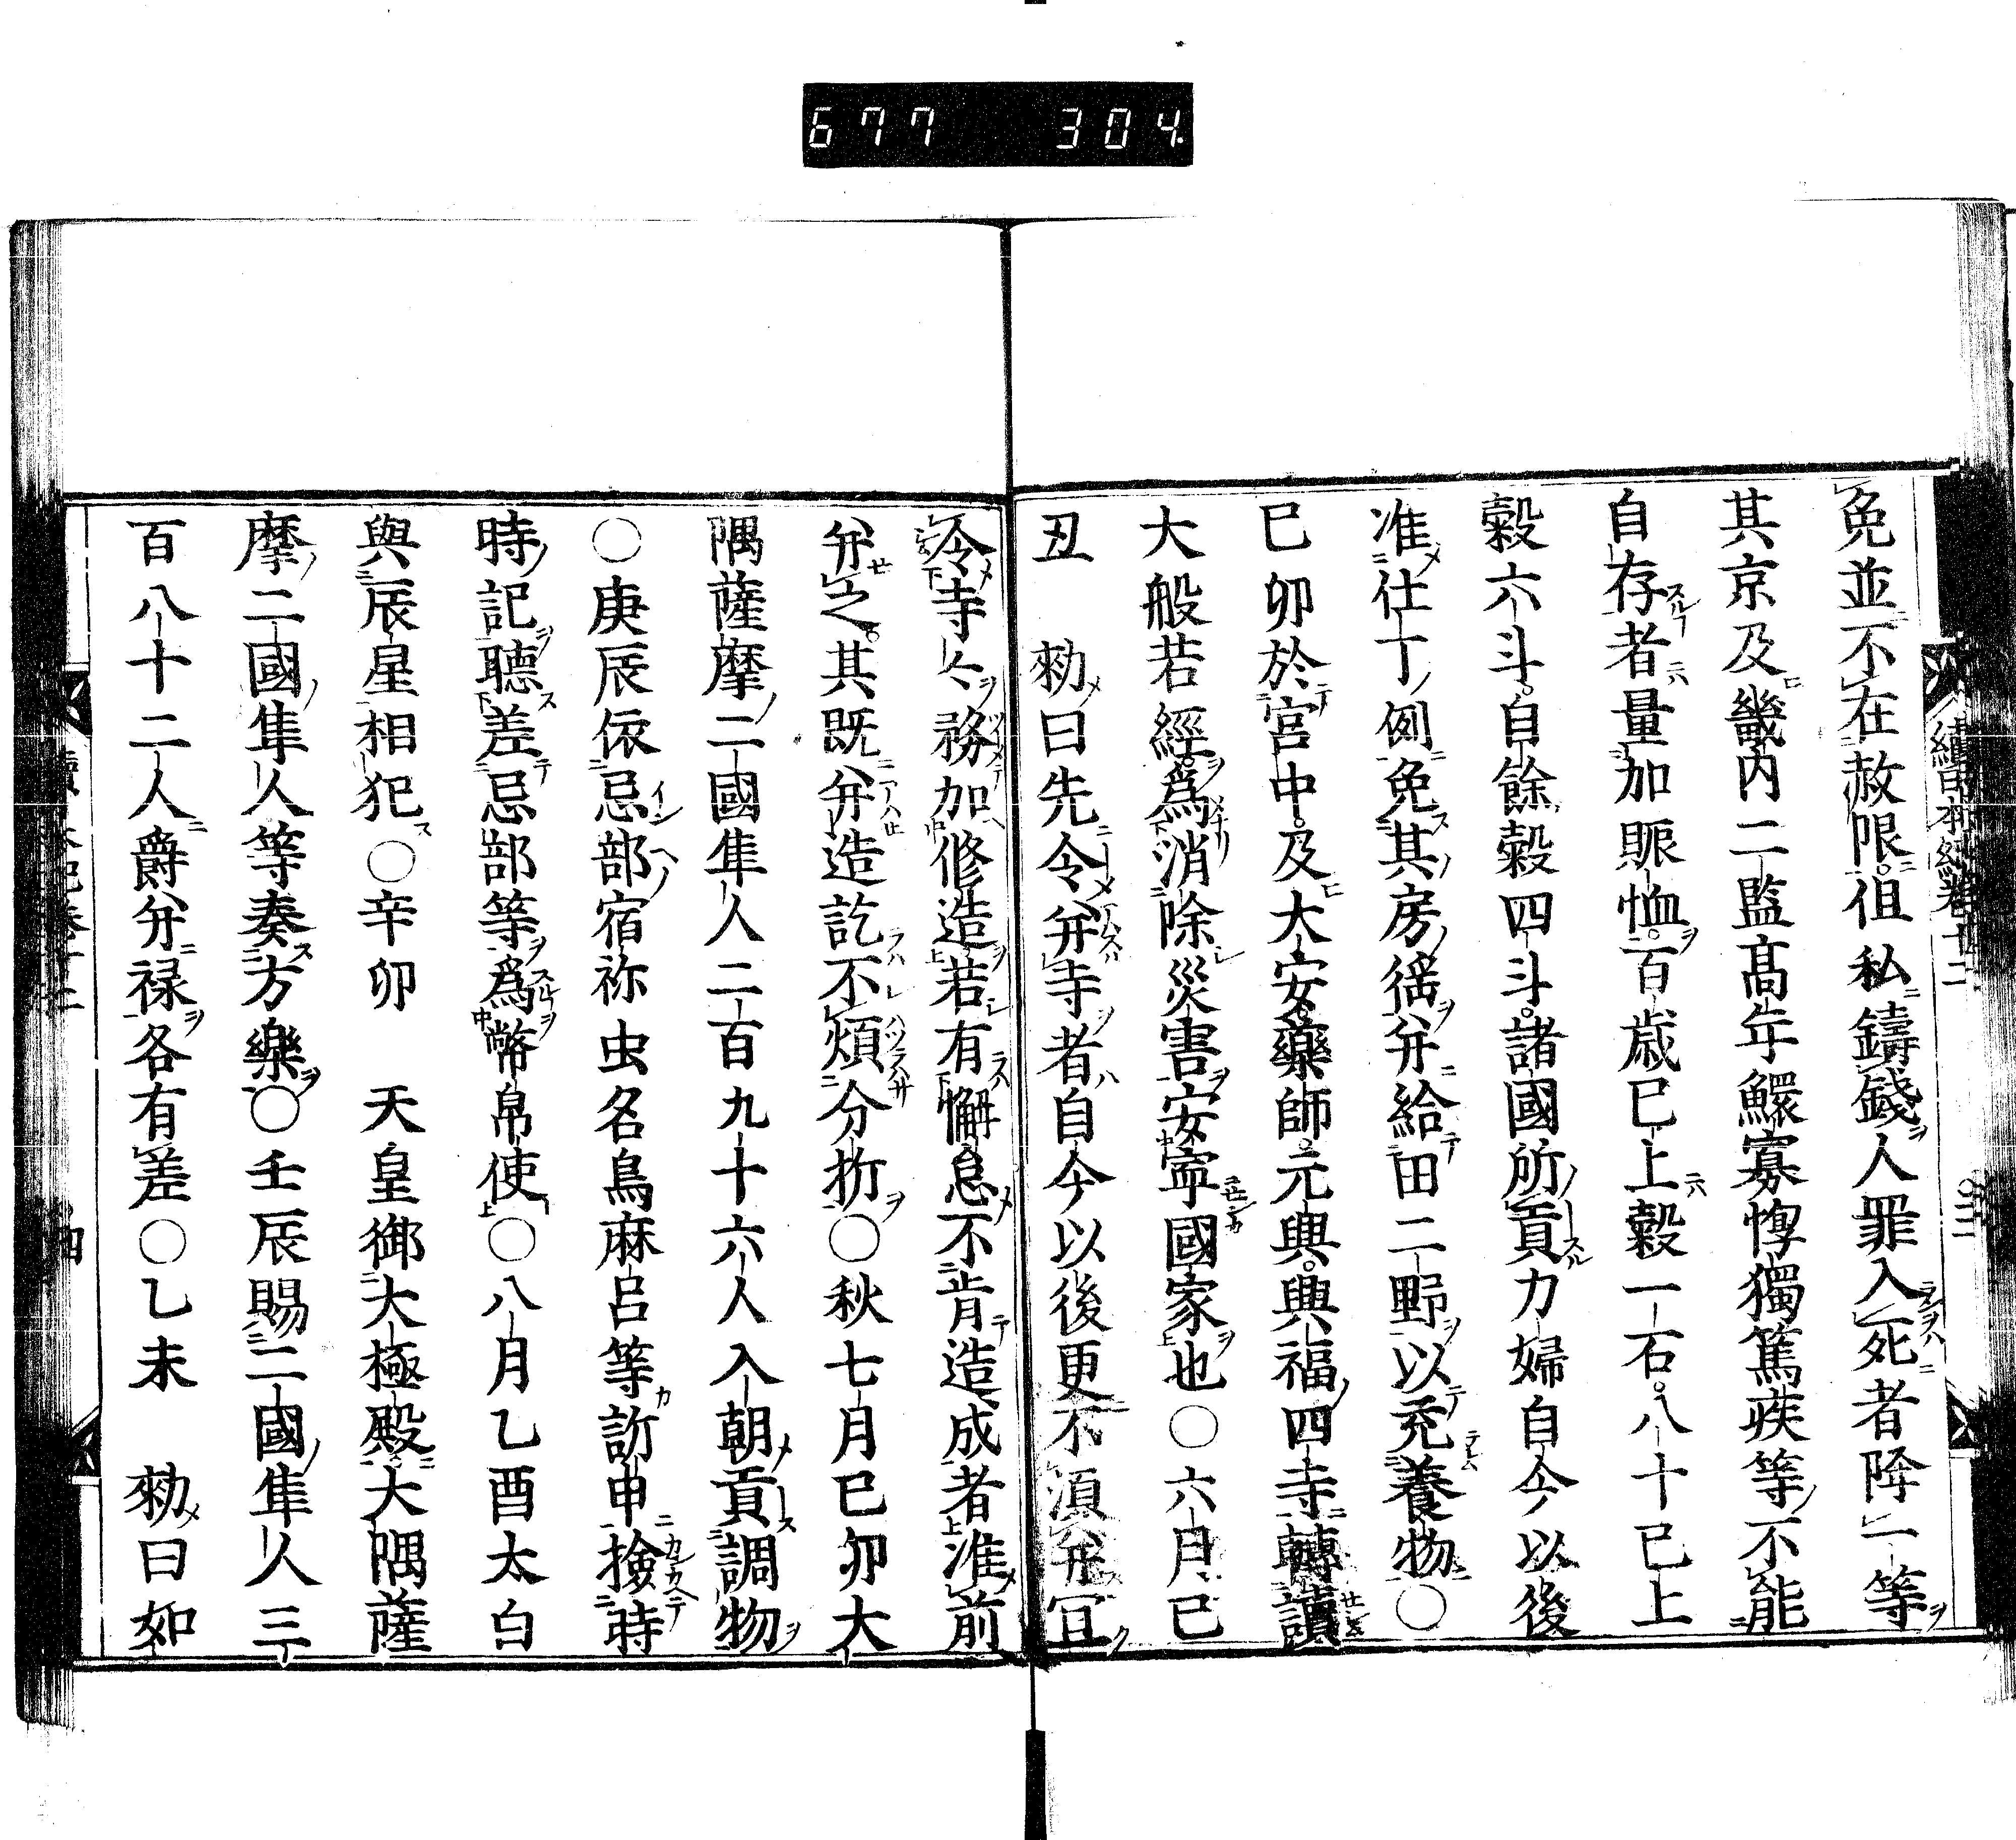 677 304
免並不在赦限。但私鑄錢人罪入死者降一等
其京及畿内二監髙年鰥寡惸獨篤疾等不能
自存者量加賑恤。百歳已上穀一石。八十已上
穀六斗。自餘穀四斗。諸國所貢力婦自今以後
准仕丁例免其房徭并給田二町以充養物○
巳卯於宮中。及大安。藥師。元興。興福四寺轉讀
大般若經。爲消除災害安寧國家也○六月己
丑　勑曰先令并寺者自今以後更不須并宜
令寺々務加修造若有懈怠不肯造成者准前
并之。其既并造訖不煩分拆○秋七月已卯大
隅薩摩二國隼人二百九十六人入朝貢調物
○庚辰依忌部宿祢虫名鳥麻呂等訴申撿時
時記聽差忌部等爲幣帛使○八月乙酉太白
與辰星相犯○辛卯　天皇御大極殿。大隅薩
摩二國隼人等奏方樂○壬辰賜二國隼人三
百八十二人爵并禄各有差○乙未　勑曰如
續日本紀卷十二
四